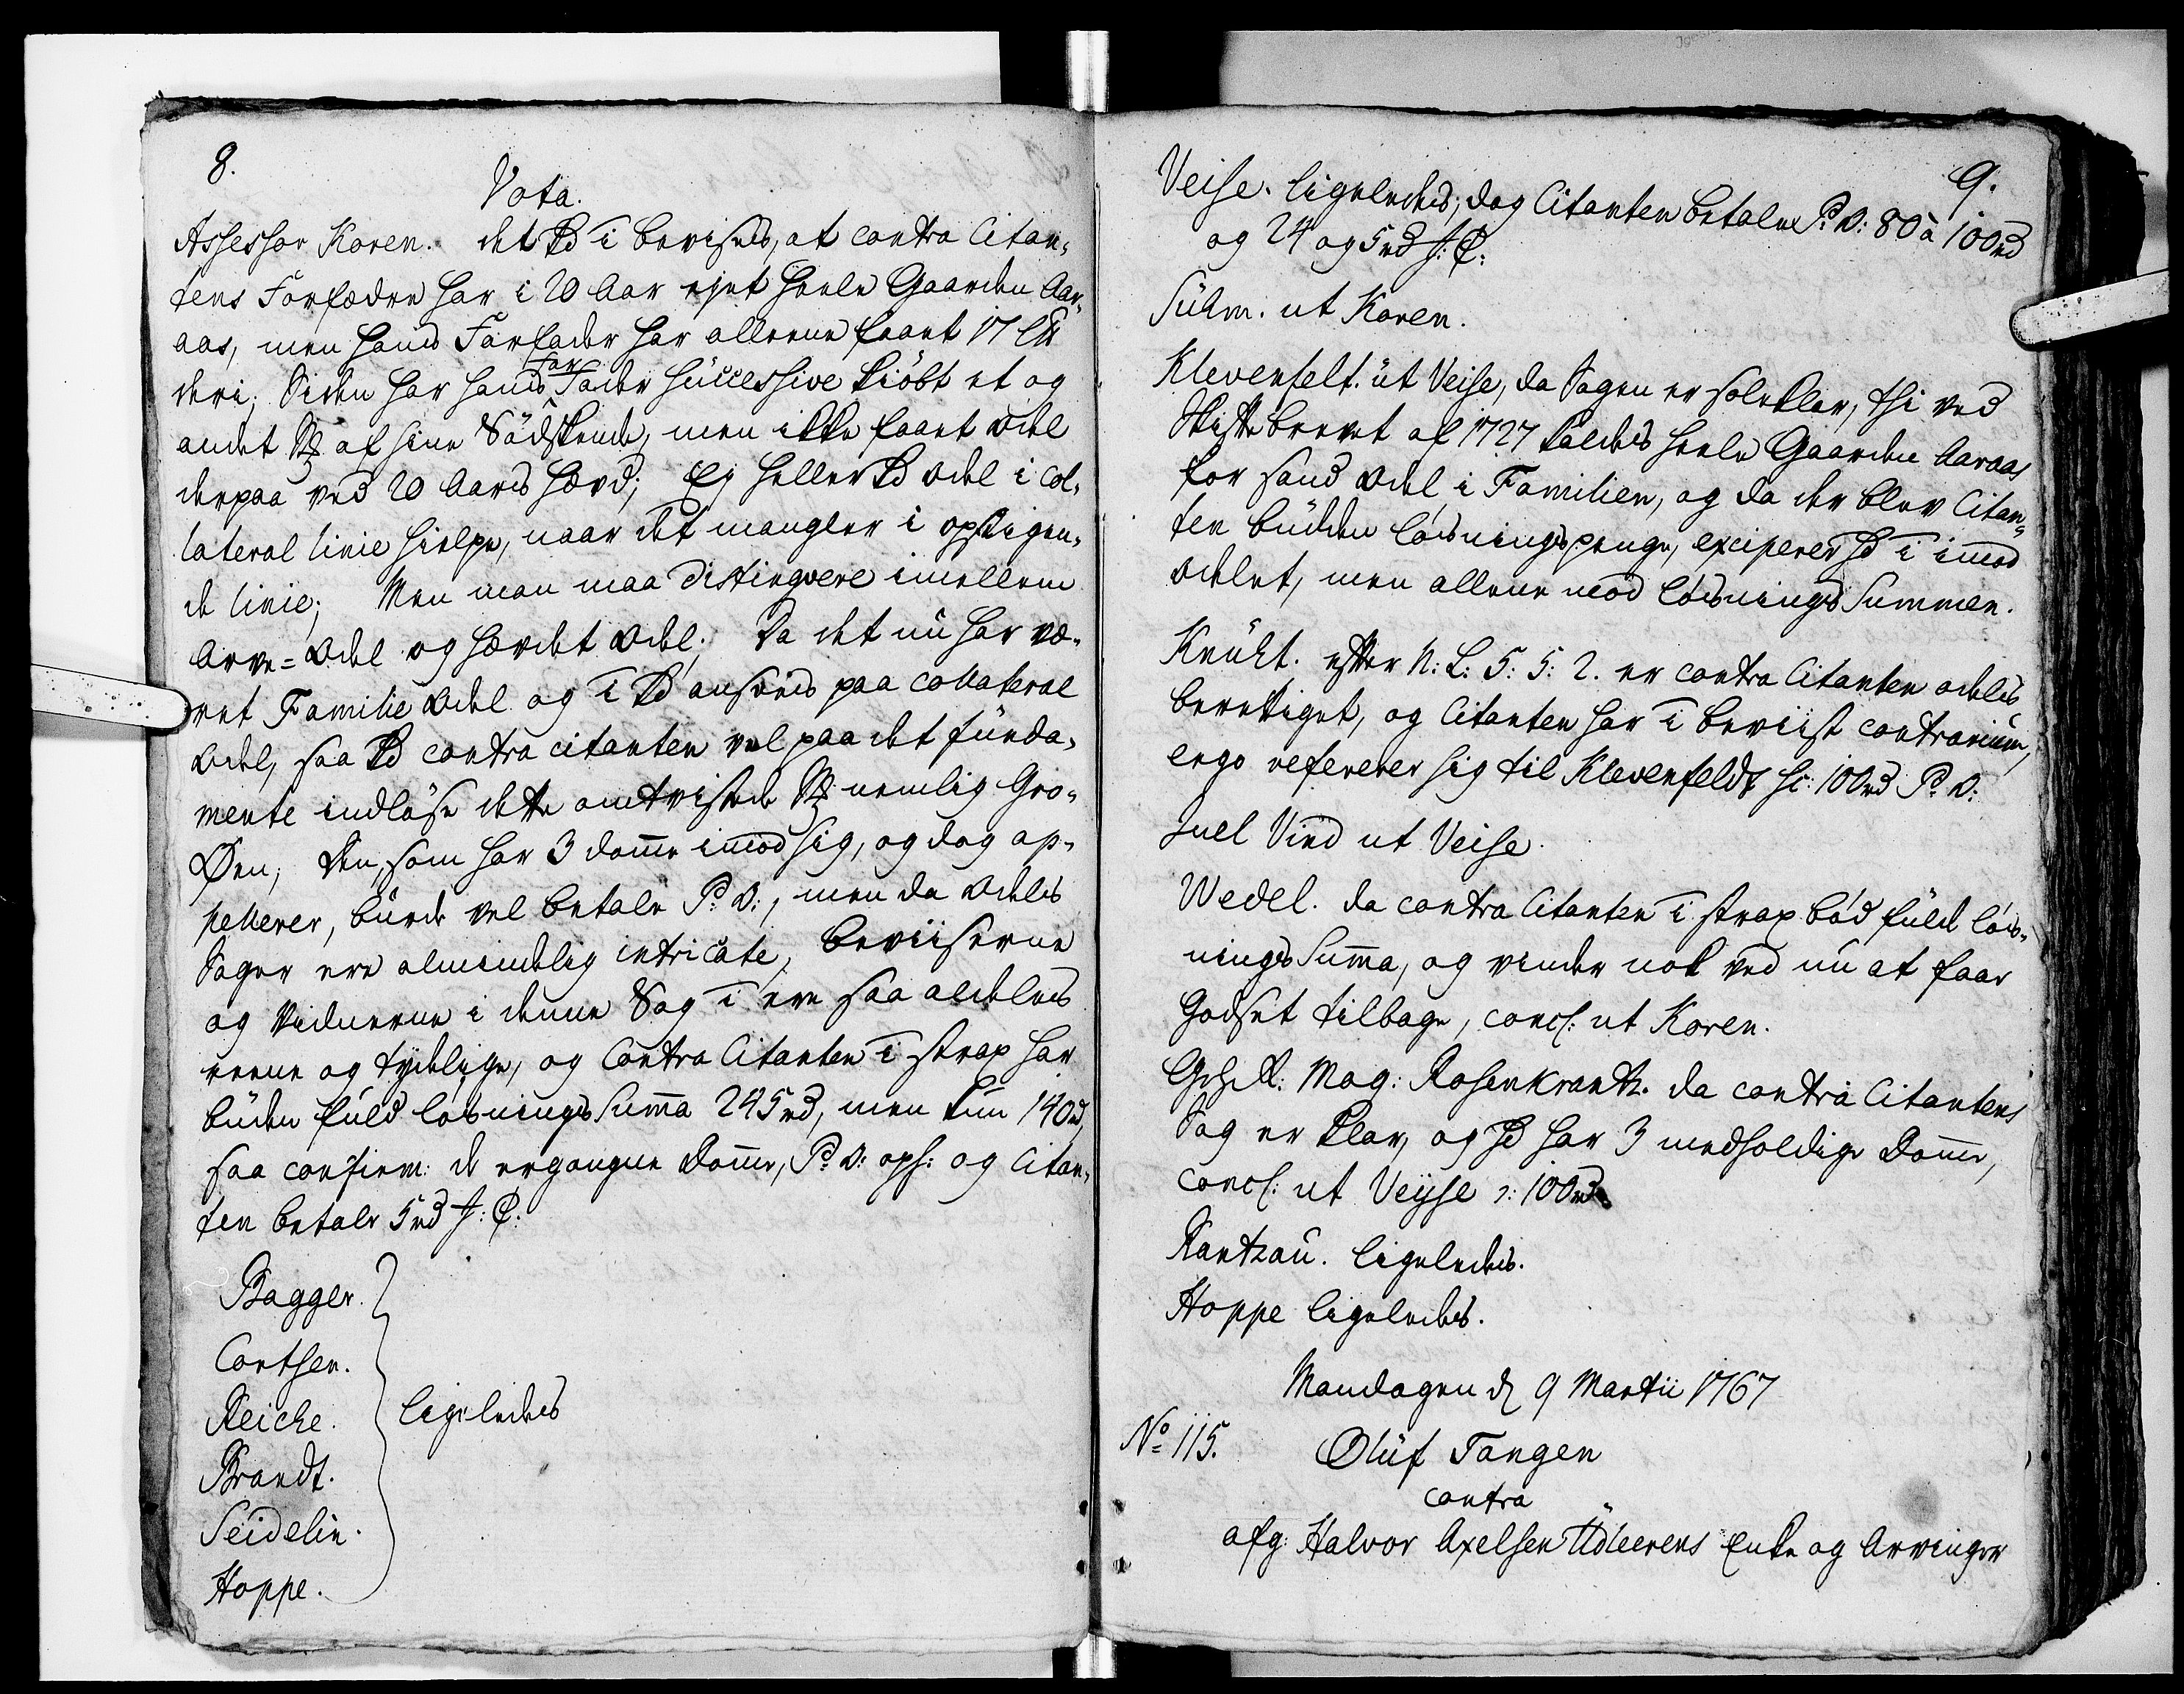 8.
Vota.
Assessor Koren. det kd i bevises, at contra Citan,
tens Forfædre har i 20 Aar ejet heele Gaarden Aar,
aas, men hans Farfader har alleene faaet 17
deri; Siden har hans Far Fader successive kiöbt et og
andet af sine Södskende, men ikke faaet odel
derpaa ved 20 Aars hævd; Ej heller kd odel i Col,
lateral linie hielpe, naar det mangler i opstigen,
de linie; Men man maa distingvere imellem
Arve=odel og hævdet odel; Da det nu har væ,
ret Familie odel og i kd ansees paa collateral
Odel, saa kd contra citanten vel paa det funda,
mente indlöse dette omtvistede nemlig Gro,
Øen; Den, som har 3 domme imod sig, og dog ap,
pellerer, burde vel betale P: D:, men da odels
Sager ere almindelig intricate, beviiserne
og Vidnerne i denne Sag i ere saa aldeles
reene og tydelige, og Contra Citanten i strax har
buden fuld lösnings Summa 245 rd, men kun 140 rd,
saa confirm: de ergangne Domme, P: D: oph: og Citan,
ten betale 5 rd J: C:
Bagger.
Cortsen.
Reiche. ligeledes
Brandt.
Seidelin.
Hoppe.
9.
Veise. ligeledes; dog Citanten betaler P: D: 80 à 100 rd
og 24 og 5 rd J: C:
Suhm. ut Koren.
Klevenfelt. ut Veise, da Sagen er soleklar, thi ved
Skiftebrevet af 1727 kaldes heele Gaarden Aaraas
for sand odel i Familien, og da der blev Citan,
ten budden lösningspenge, exciperer hd i imod
odelet, men alleene mod lösnings Summen.
Knuht. efter N: L: 5: 5: 2. er contra Citanten odels
berettiget, og Citanten har i beviist contrarium,
ergo refererer sig til Klevenfeldt sc: 100 rd P: D:
Juel Vind ut Veise.
Wedel. da contra Citanten i strax böd fuld lös,
nings Summa, og vinder nok ved nu at faae
Godset tilbage, concl: ut Koren.
Geh. R: Mag: Rosenkrantz. da contra Citantens
Sag er klar, og hd har 3 medholdige Domme,
concl: ut Veyse : 100 rd
Rantzau. ligeledes.
Hoppe ligeledes.
Mandagen d 9 Martii 1767
No 115. Oluf Tangen
contra
afg: Halvor Axelsen Udleerens Enke og Arvinger